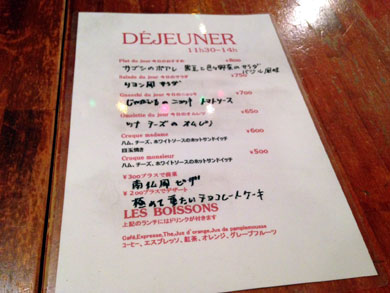 DÉJEUNER
11h30-14h
Plat du jour 今日のおすすめ ¥800
サゴシのポアレ 黒豆と色々野菜のサラダ バジル風味
Salade du jour 今日のサラダ ¥750
リヨン風 サラダ
Gnocchi du jour 今日のニョッキ ¥700
じゃがいものニョッキ トマトソース
Omelette du jour 今日のオムレツ ¥650
ツナ チーズの オムレツ
Croque madame ¥600
ハム、チーズ、ホワイトソースのホットサンドイッチ
目玉焼き
Croque monsieur ¥500
ハム、チーズ、ホワイトソースのホットサンドイッチ
¥300プラスで前菜
南仏風 ピザ
¥200プラスでデザート
極めて重たいチョコレートケーキ
LES BOISSONS
上記のランチにはドリンクが付きます
Café,Expresse,The,Jus d'orange,Jus de pamplemousse
コーヒー、エスプレッソ、紅茶、オレンジ、グレープフルーツ